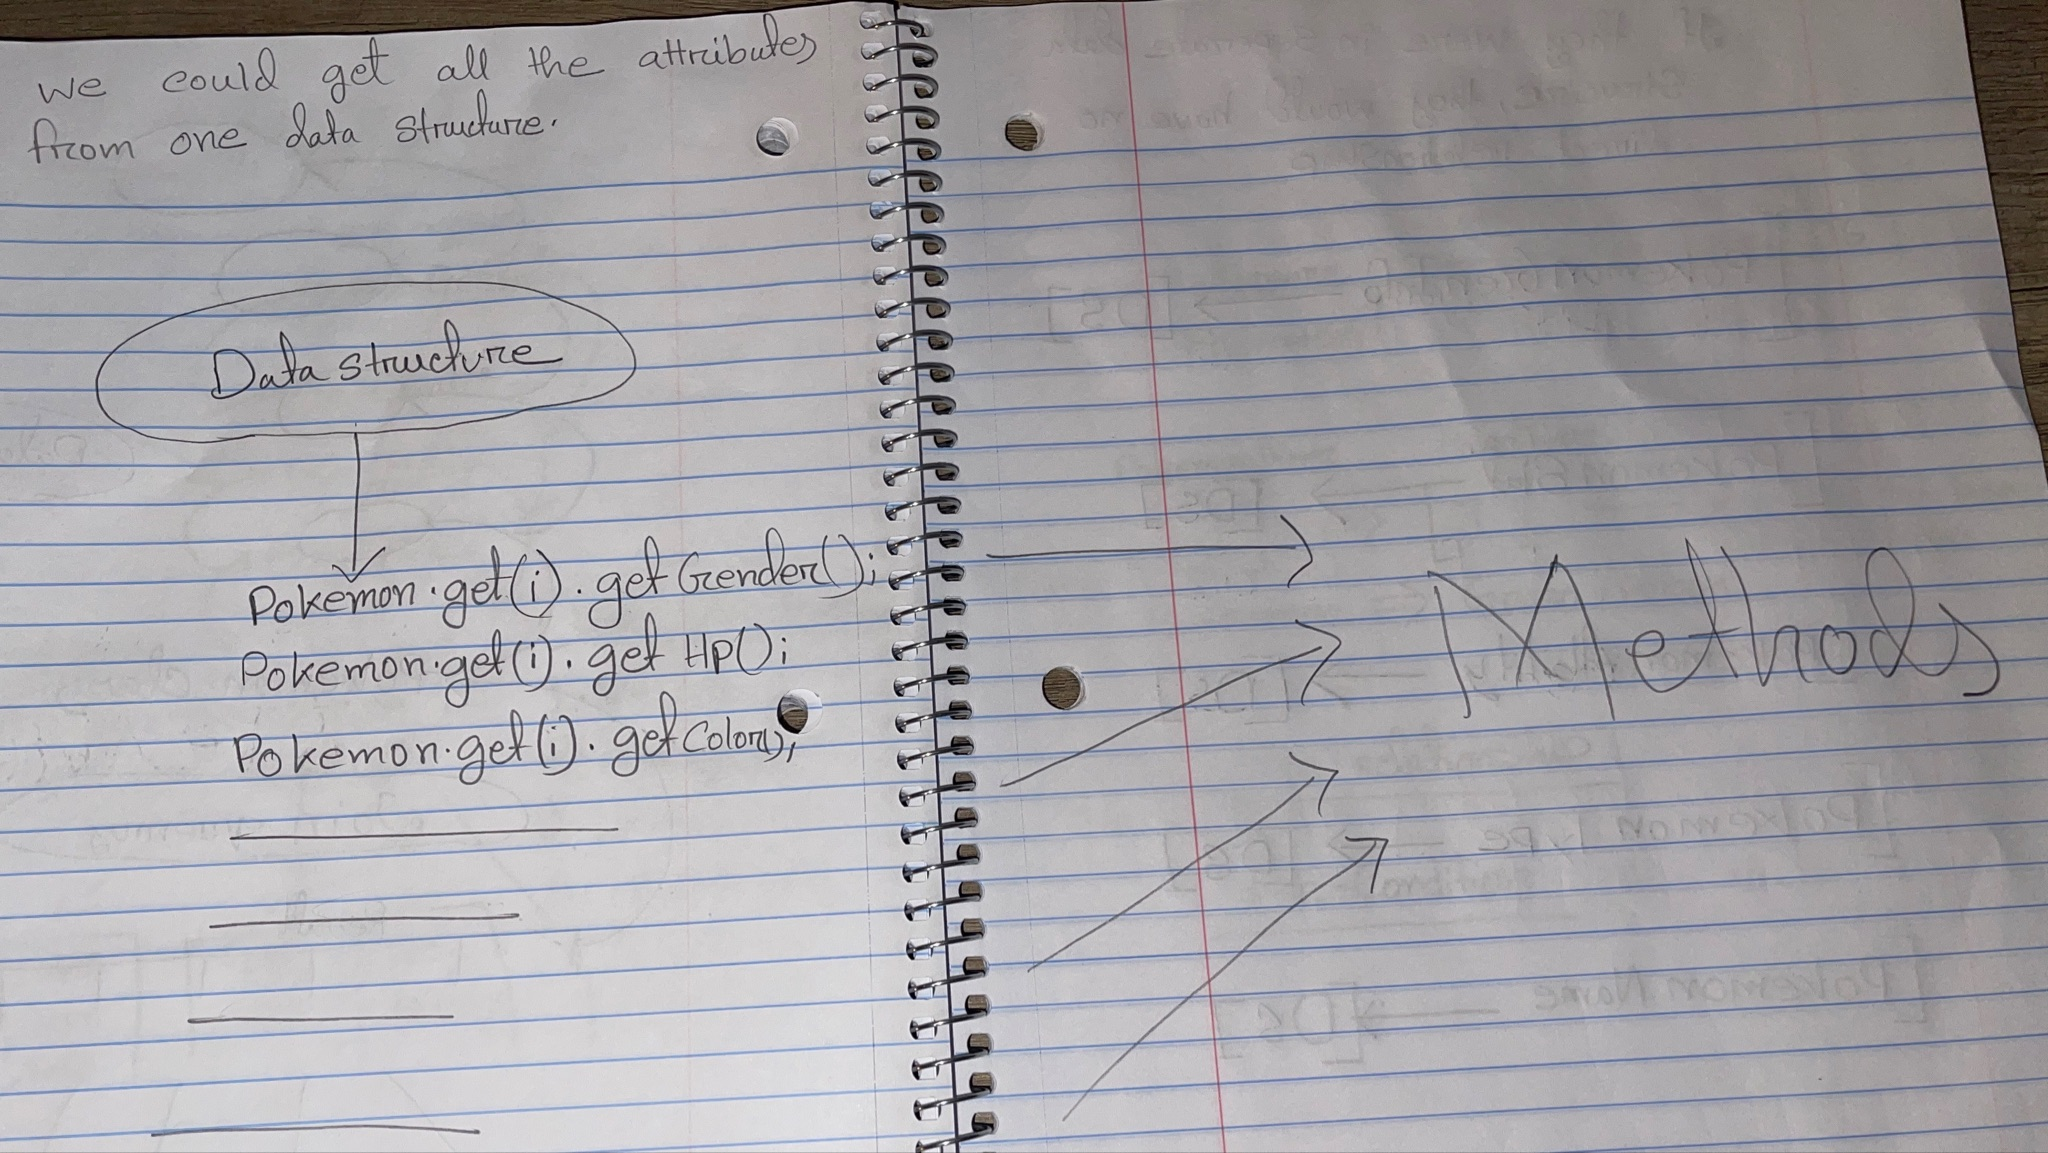 we could get all the attributes
from one data structure.
Data structure
Pokemon.get(i).getGender();
Pokemon.get(i).get Hp();
Pokemon.get(i).getColor();
Methods